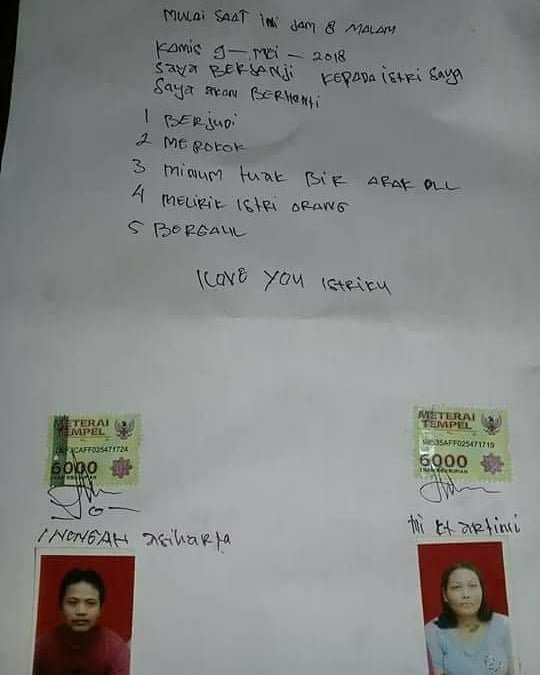 MULAI SAAT INI JAM 8 MALAM
KAMIS 9 - MEI - 2018
SAYA BERJANJI KEPADA ISTRI SAYA
SAYA AKAN BERHENTI
1 BERJUDI
2 MEROKOK
3 MINIUM TUAK BIR ARAK DLL
4 MELIRIK ISTRI ORANG
5 BERGAUL
I LOVE YOU ISTRIKU
METERAI
TEMPEL
CAFF025471724
6000
ENAM RIBU RUPIAH
METERAI
TEMPEL
AFF025471719
6000
ENAM RIBU RUPIAH
I NENGAH ASIHARTA
Ni Kt ARTINI